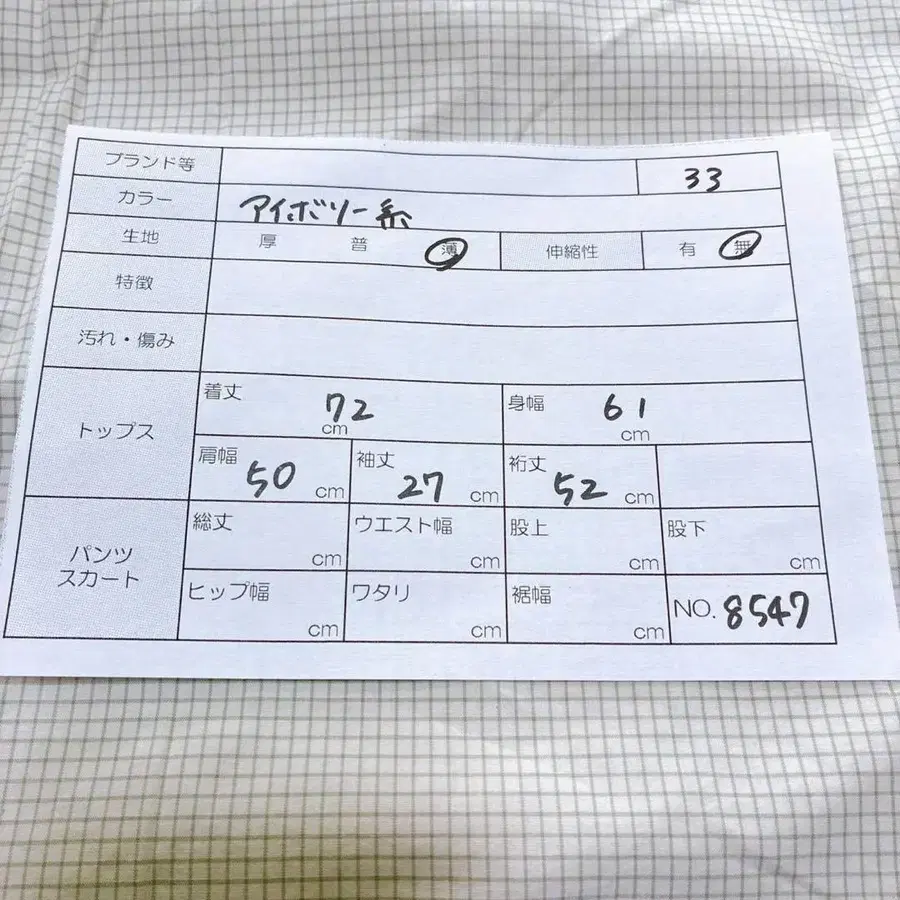 ブランド等 33
カラー アイボリー系
生地 厚 普 薄 伸縮性 有 無
特徴
汚れ・傷み
トップス
着丈 72 cm 身幅 61 cm
肩幅 50 cm 袖丈 27 cm 裄丈 52 cm
パンツ
スカート
総丈 cm ウエスト幅 cm 股上 cm 股下 cm
ヒップ幅 cm ワタリ cm 裾幅 cm NO. 8547